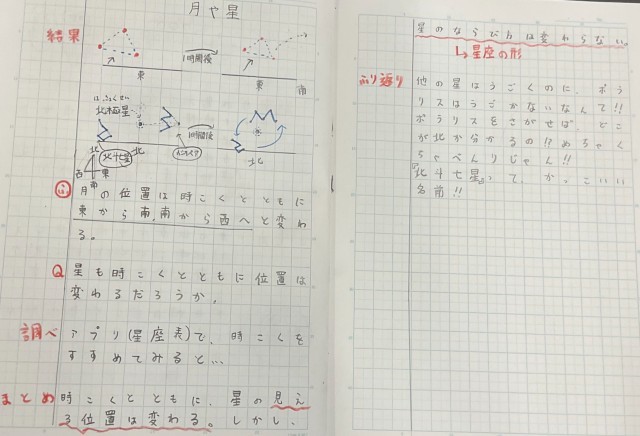 月や星
結果
1時間後
東
東
南
ほっきょくせい
北極星
北
北
北斗七星
カシオペヤ
1時間後
北
西
東
南
月の位置は時こくとともに
東から南、南から西へと変わ
る。
Q 星も時こくとともに位置は
変わるだろうか。
調べ アプリ(星座表)で、時こくを
すすめてみると…
まとめ 時こくとともに、星の見え
る位置は変わる。しかし、
星のならび方は変わらない。
↳星座の形
ふり返り 他の星はうごくのに、ポラ
リスはうごかないなんて!!
ポラリスをさがせば、どこ
が北か分かるの!?めちゃく
ちゃべんりじゃん!!
"北斗七星"って、かっこいい
名前!!